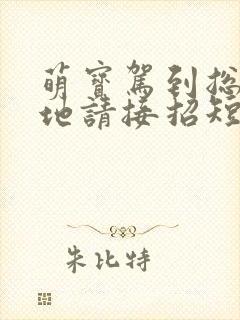 萌寶駕到总
地請接招短
朱比特